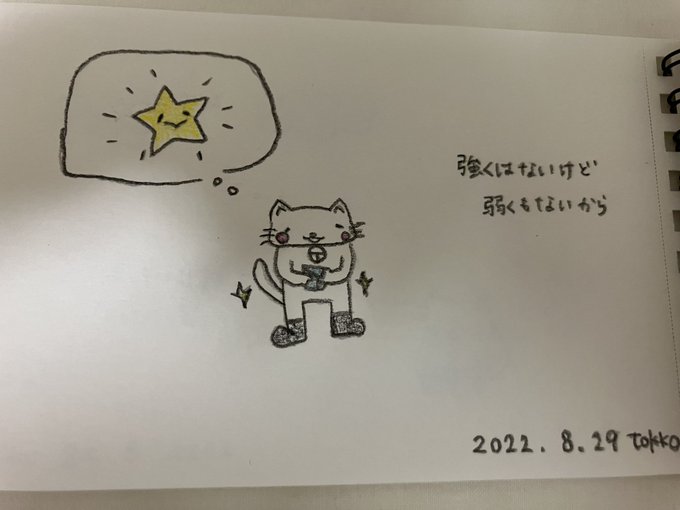 強くはないけど
弱くもないから
2022.8.29 tokko